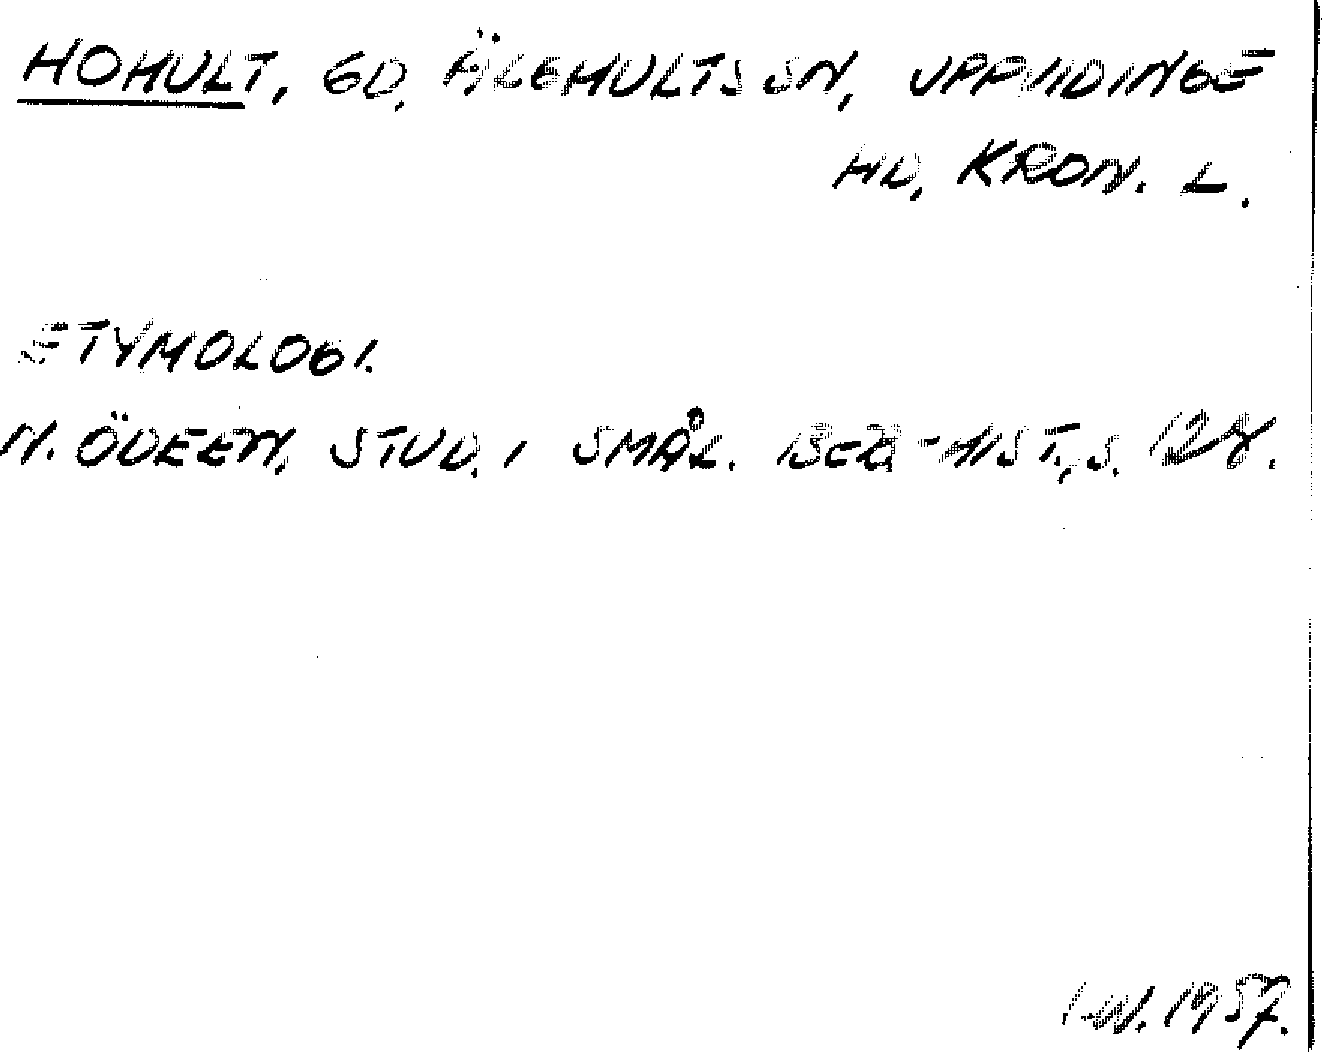 HOHULT, GD, ÄLGHULTS SN, UPPVIDINGE
HD, KRON. L.
ETYMOLOGI.
N. ÖDEEN, STUD. I SMÅL. BEB-HIST., S. 128.
1957.